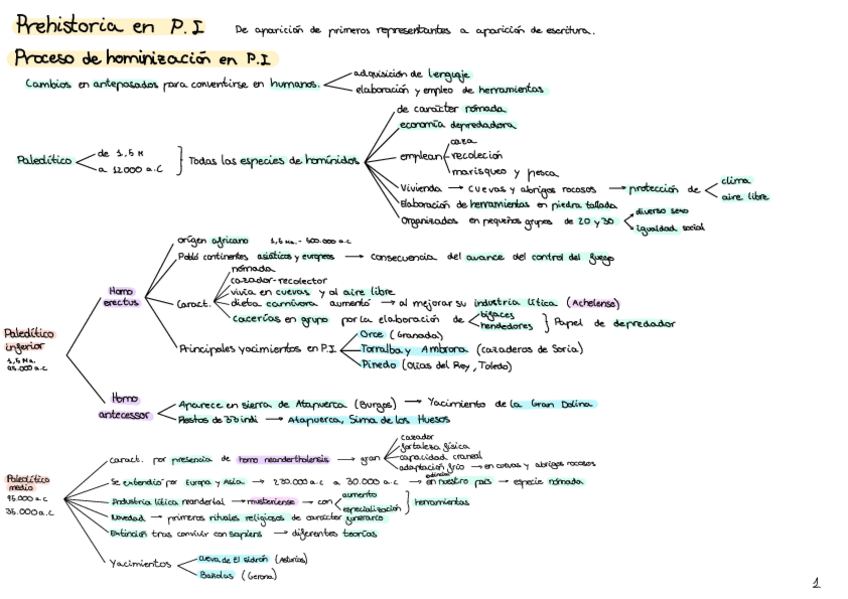 Prehistoria en P.I De aparición de primeros representantes a aparición de escritura.
Proceso de hominización en P.I
Cambios en antepasados para convertirse en humanos.
adquisición de lenguaje
elaboración y empleo de herramientas
Paleolítico
de 1,5 M
a 12000 a.C
Todas las especies de homínidos
de carácter nómada
economía depredadora
emplean
caza
recoleción
marisqueo y pesca
Vivienda → cuevas y abrigos rocosos → protección de
clima
aire libre
Elaboración de herramientas en piedra tallada
Organizados en pequeños grupos de 20 y 30
diverso sexo
igualdad social
Paleolítico inferior
1,5 Ma.
95.000 a.C
Homo erectus
orígen africano 1,5 Ma. - 500.000 a.C
Pobló continentes asiáticos y europeos → consecuencia del avance del control del fuego
Caract.
nómada
cazador-recolector
vivía en cuevas y al aire libre
dieta carnívora aumentó → al mejorar su industria lítica (Achelense)
cacerías en grupo por la elaboración de
bifaces
hendedores
Papel de depredador
Principales yacimientos en P.I
Orce (Granada)
Torralba y Ambrona (cazaderos de Soria)
Pinedo (Olías del Rey, Toledo)
Homo antecessor
Aparece en sierra de Atapuerca (Burgos) → Yacimiento de la Gran Dolina
Restos de 30 indi → Atapuerca, Sima de los Huesos
Paleolítico medio
95.000 a.C
35.000 a.C
caract. por presencia de homo neanderthalensis → gran
cazador
fortaleza física
capacidad craneal
adaptación frío → en cuevas y abrigos rocosos
Se extendió por Europa y Asia → 230.000 a.C a 30.000 a.C → en nuestro país → especie nómada
Industria lítica neandertal → musteriense → con
aumento
especialización
herramientas
Novedad → primeros rituales religiosos de carácter funerario
Extinción tras convivir con sapiens → diferentes teorías
Yacimientos
cueva de El Sidrón (Asturias)
Bañolas (Gerona)
1